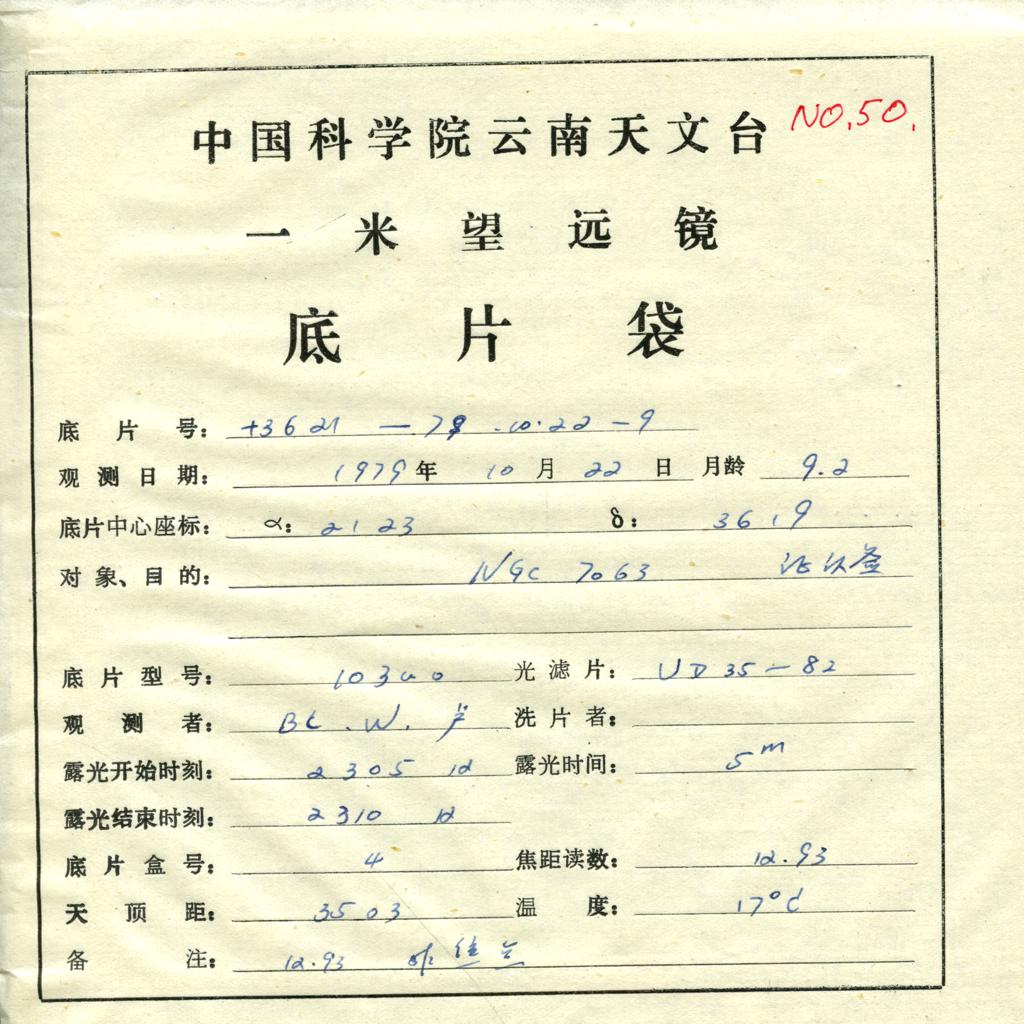 NO.50.
中国科学院云南天文台
一米望远镜
底片袋
底片号: +3621 — 79.10.22 — 9
观测日期: 1979年 10月 22日 月龄 9.2
底片中心座标: α: 2123 δ: 36.9
对象、目的: NGC 7063
底片型号: 103a0 光滤片: UD 35 — 82
观测者: 洗片者:
露光开始时刻: 2305 露光时间: 5m
露光结束时刻: 2310
底片盒号: 4 焦距读数: 12.93
天顶距: 3503 温度: 17°C
备注: 12.93